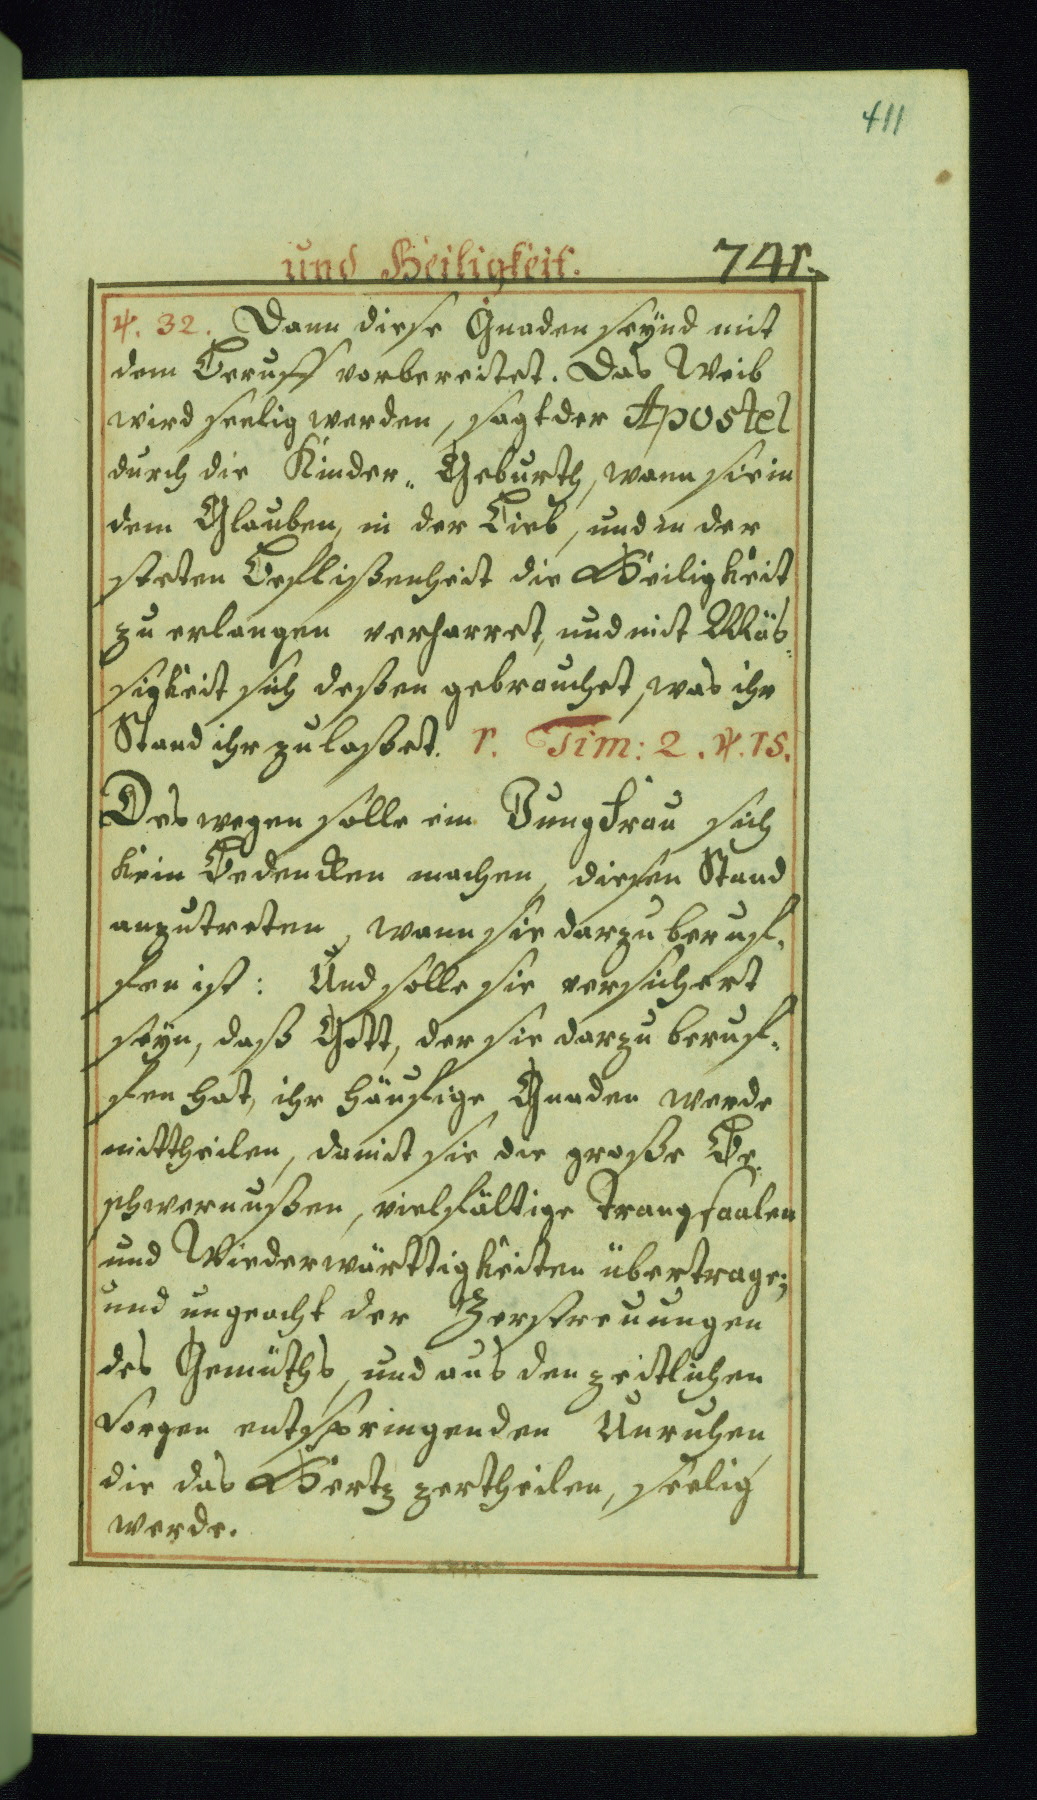 411
und Heiligkeit. 741.
v. 32. Dann diese Gnaden seynd mit
dem Beruff vorbereitet. Das Weib
wird seelig werden, sagt der Apostel
durch die Kinder„ Geburth, wann sie in
dem Glauben, in der Lieb, und in der
steten Beflißenheit die Heiligkeit
zu erlangen verharret, und mit Mäs„
sigkeit sich deßen gebrauchet, was ihr
Stand ihr zulaßet. 1. Tim: 2. v. 15.
Deswegen solle ein Jungfrau sich
kein Bedencken machen, diesen Stand
anzutreten, wann sie darzu beruf„
fen ist: Und solle sie versichert
seyn, daß Gott, der sie darzu beruf„
fen hat, ihr häufige Gnaden werde
mittheilen, damit sie die große Be„
schwernußen, vielfältige Trangsaalen
und Wiederwärttigkeiten übertrage;
und ungeacht der Zerstreuungen
des Gemüths, und aus den zeitlichen
Sorgen entspringenden Unruhen,
die das Hertz zertheilen, seelig
werde.